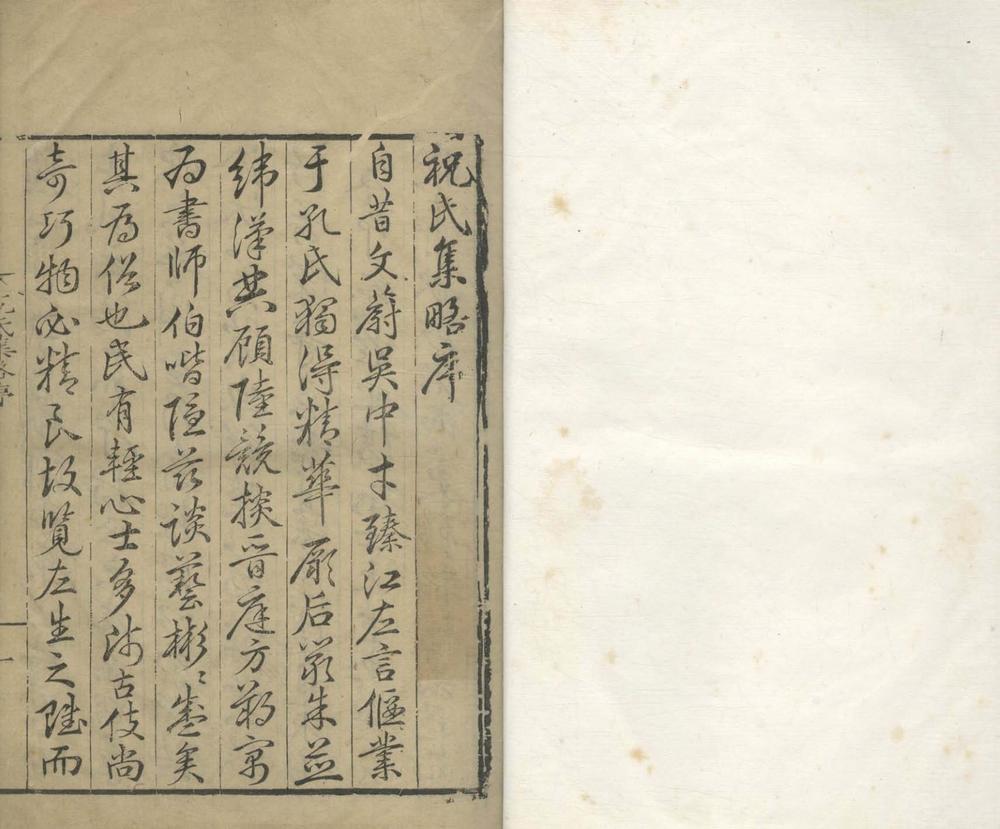 祝氏集略序
自昔文蔚吳中才臻江左言偃業
于孔氏獨得精華厥后嚴朱並
緯漢典顧陸競掞晉庭方朔寓
為書師伯喈隱茲談藝彬〻盛矣
其為俗也民有輕心士多師古伎尚
奇巧物必精良故覽左生之賦而
氏集略序
一